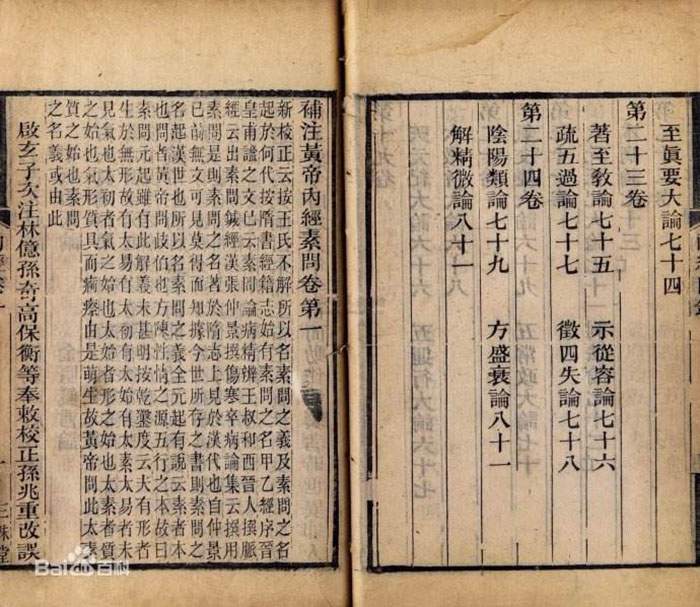 至眞要大論七十四
第二十三卷
著至敎論七十五 示從容論七十六
疏五過論七十七 徵四失論七十八
第二十四卷
陰陽類論七十九 方盛衰論八十一
解精微論八十一
補注黃帝內經素問卷第一
新校正云按王氏不解所以名素問之義及素問之名
起於何代按隋書經籍志始有素問之名甲乙經序晉
皇甫謐之文已云素問論病精辨王叔和西晉人撰脉
經云出素問鍼經漢張仲景撰傷寒卒病論集云撰用
素問是則素問之名著於隋志上見於漢代也自仲景
已前無文可見莫得而知據今世所存之書則素問之
名起漢世也所以名素問之義全元起有說云素者本
也問者黃帝問岐伯也方陳性情之源五行之本故曰
素問元起雖有此解義未甚明按乾鑿度云夫有形者
生於無形故有太易有太初有太始有太素太易者未
見氣也太初者氣之始也太始者形之始也太素者質
之始也氣形質具而痾瘵由是萌生故黃帝問此太素
質之始也素問
之名義或由此
啟玄子次注林億孫奇高保衡等奉敕校正孫兆重改誤
Bai百科